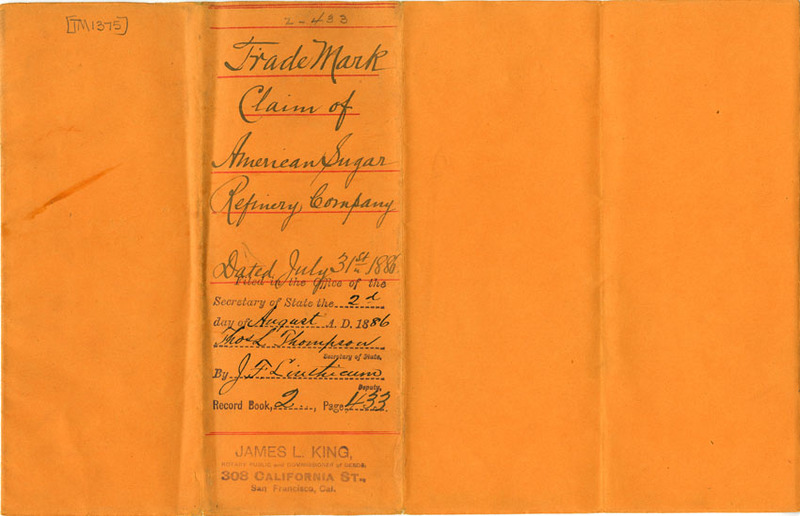 [TM1375]
2-433
Trade Mark
Claim of
American Sugar
Refinery, Company
Dated July 31st 1886
Filed in the Office of the
Secretary of State the 2d
day of August A. D. 1886
Thos L Thompson
Secretary of State.
By J. F. Linthicum
Deputy.
Record Book, 2, Page 433
JAMES L. KING,
NOTARY PUBLIC and COMMISSIONER of DEEDS,
308 CALIFORNIA ST.,
San Francisco, Cal.